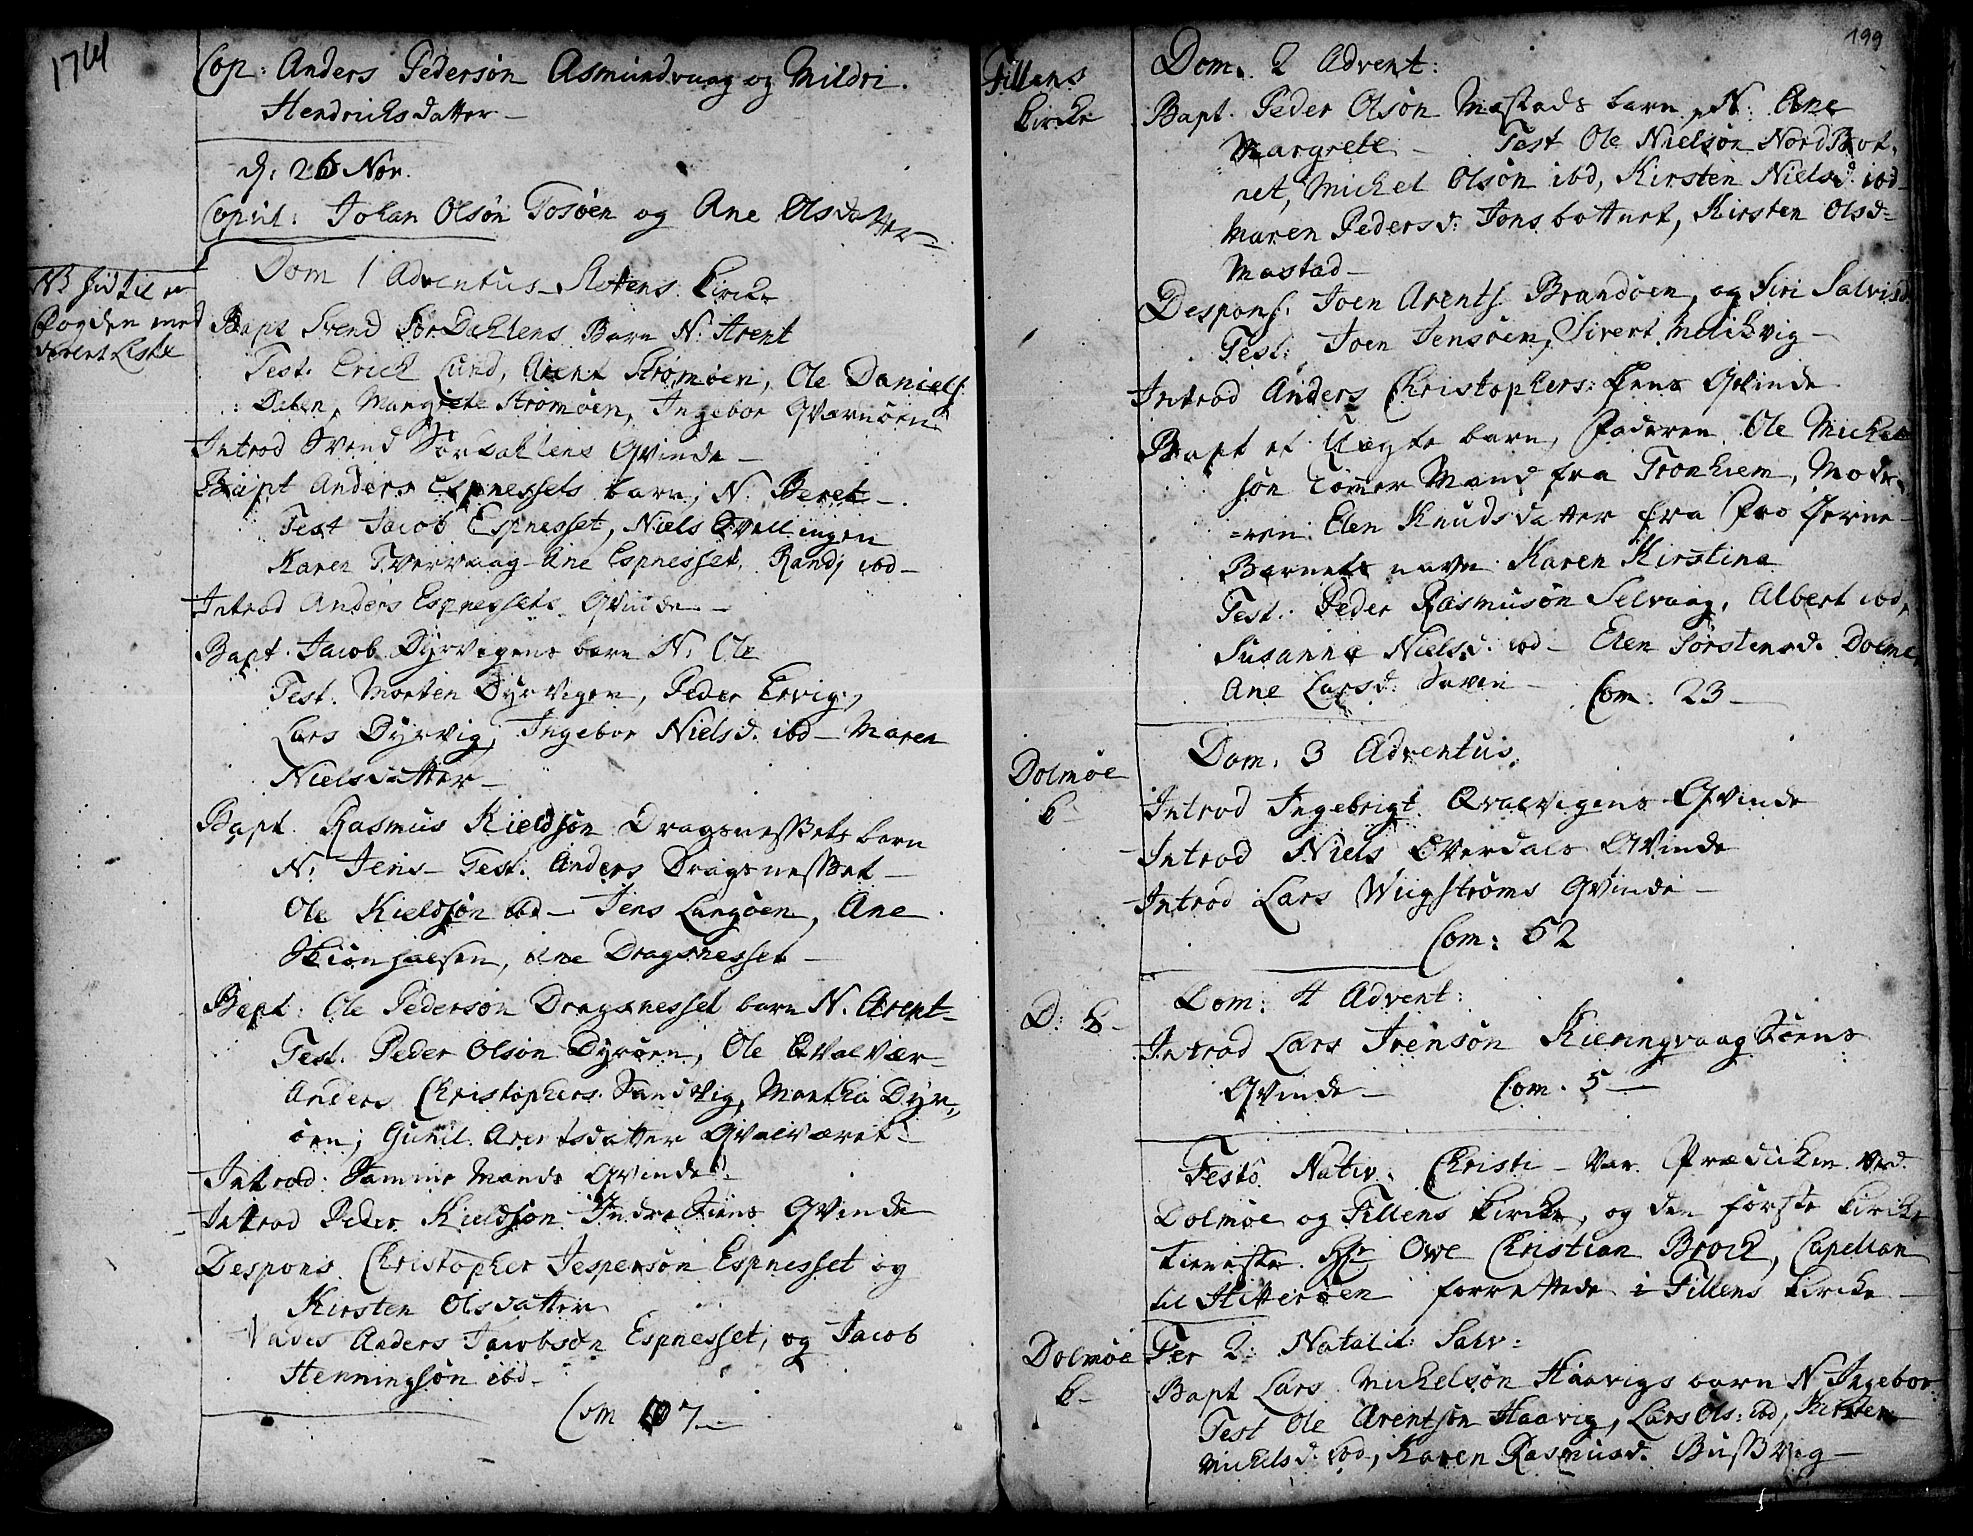 1764
Cop: Anders Pedersøn Asmundvaag og Mildri
Hendrichsdatter –
d: 26 Nov.
Copul: Johan Olsøn Tosøen og Ane Olsdatter –
Dom 1 Adventus – Slettens Kirche
NB hid til er
Fogden med
deelt Liste
Bapt Svend Sørdahlens Barn N: Arent
Test. Erich Lund, Arent Strømøen, Ole Daniels:
Margrete Strømøen, Ingebor Qværnøen
Introd Svend Sørdahlens Qvinde –
Bapt Anders Espnessets barn, N. Beret –
Test Jacob Espnesset, Niels Qvellingen
Karen Tvervaag – Ane Espnesset, Randj ibd –
Introd Anders Espnessets Qvinde –
Bapt. Jacob Dyrvigens barn N: Ole
Test. Morten Dyrvigen, Peder Ervig,
Lars Dyrvig, Ingebor Nielsd. ibd – Maren
Nielsdatter –
Bapt. Rasmus Kieldsøn Dragsnessets barn
N: Jens – Test. Anders Dragsnesset –
Ole Kieldsøn ibd – Jens Langøen, Ane
Skionhalsen, Ane Dragsnesset –
Bapt: Ole Pedersøn Dragsnesset barn N. Arent –
Test. Peder Olsøn Dyrøen, Ole Qvalvær –
Anders Christophers. Sandvig, Martha Dyr„
øen, Gunil Arentsdatter Qvalværet –
Introd: Samme Mands Qvinde –
Introd Peder Kieldsøn Qvinde
Despons Christopher Jespersøn Espnesset og
Kirsten Olsdatter
Vades Anders Jacobsøn Espnesset, og Jacob
Henningsøn ibd –
Com 107 –
199
Fillens
Kirche
Dom. 2 Advent:
Bapt. Peder Olsøn Mastads barn, N: Ane
Margrete – Test Ole Nielsøn NordBot„
net, Michel Olsøn ibd, Kirsten Nielsd. ibd –
Maren Pedersd: Jonsbottnet, Kirsten Olsd=
Mastad –
Despons. Joen Arents. Brandøen, og Siri Salvisd
Test: Joen Jensøen, Sivert Melchvig –
Introd Anders Christophers: Qvinde
Bapt et Uægte barn, Faderen Ole Michel
søn Tømer Mand fra Tronhiem, Mode„
=ren: Elen Knudsdatter fra
Barnets navn Karen Kirstina
Test: Peder Rasmusøn Selvaag, Albert ibd,
Susanna Nielsd: ibd – Elen Torstensd. Dolme,
Ane Larsd: – Com. 23 –
Dolmøe
K –
Dom. 3 Adventus.
Introd Ingebrigt Qvalvigens Qvinde
Introd Niels Overdals Qvinde
Introd Lars Wiigstrøms Qvinde –
Com: 52
D: K –
Dom: 4 Advent:
Introd Lars Iversøn Kieringvaag Søens
Qvinde – Com. 5 –
Festo Nativ: Christi – var Prædicken ved
Dolmøe og Fillens Kirche, og den første Kirche
tieniste Hr Owe Christian Brock, Capellan
til Hitterøen forrettede i Fillens Kirche –
Dolmøe
K –
Fer 2: Natalit: Salv:
Bapt Lars Michelsøn Haavigs barn N Ingebor
Test Ole Arentsøn Haavig, Lars Ols: ibd, Kirsten
Michelsd. ibd, Karen Rasmusd. Bussvig –